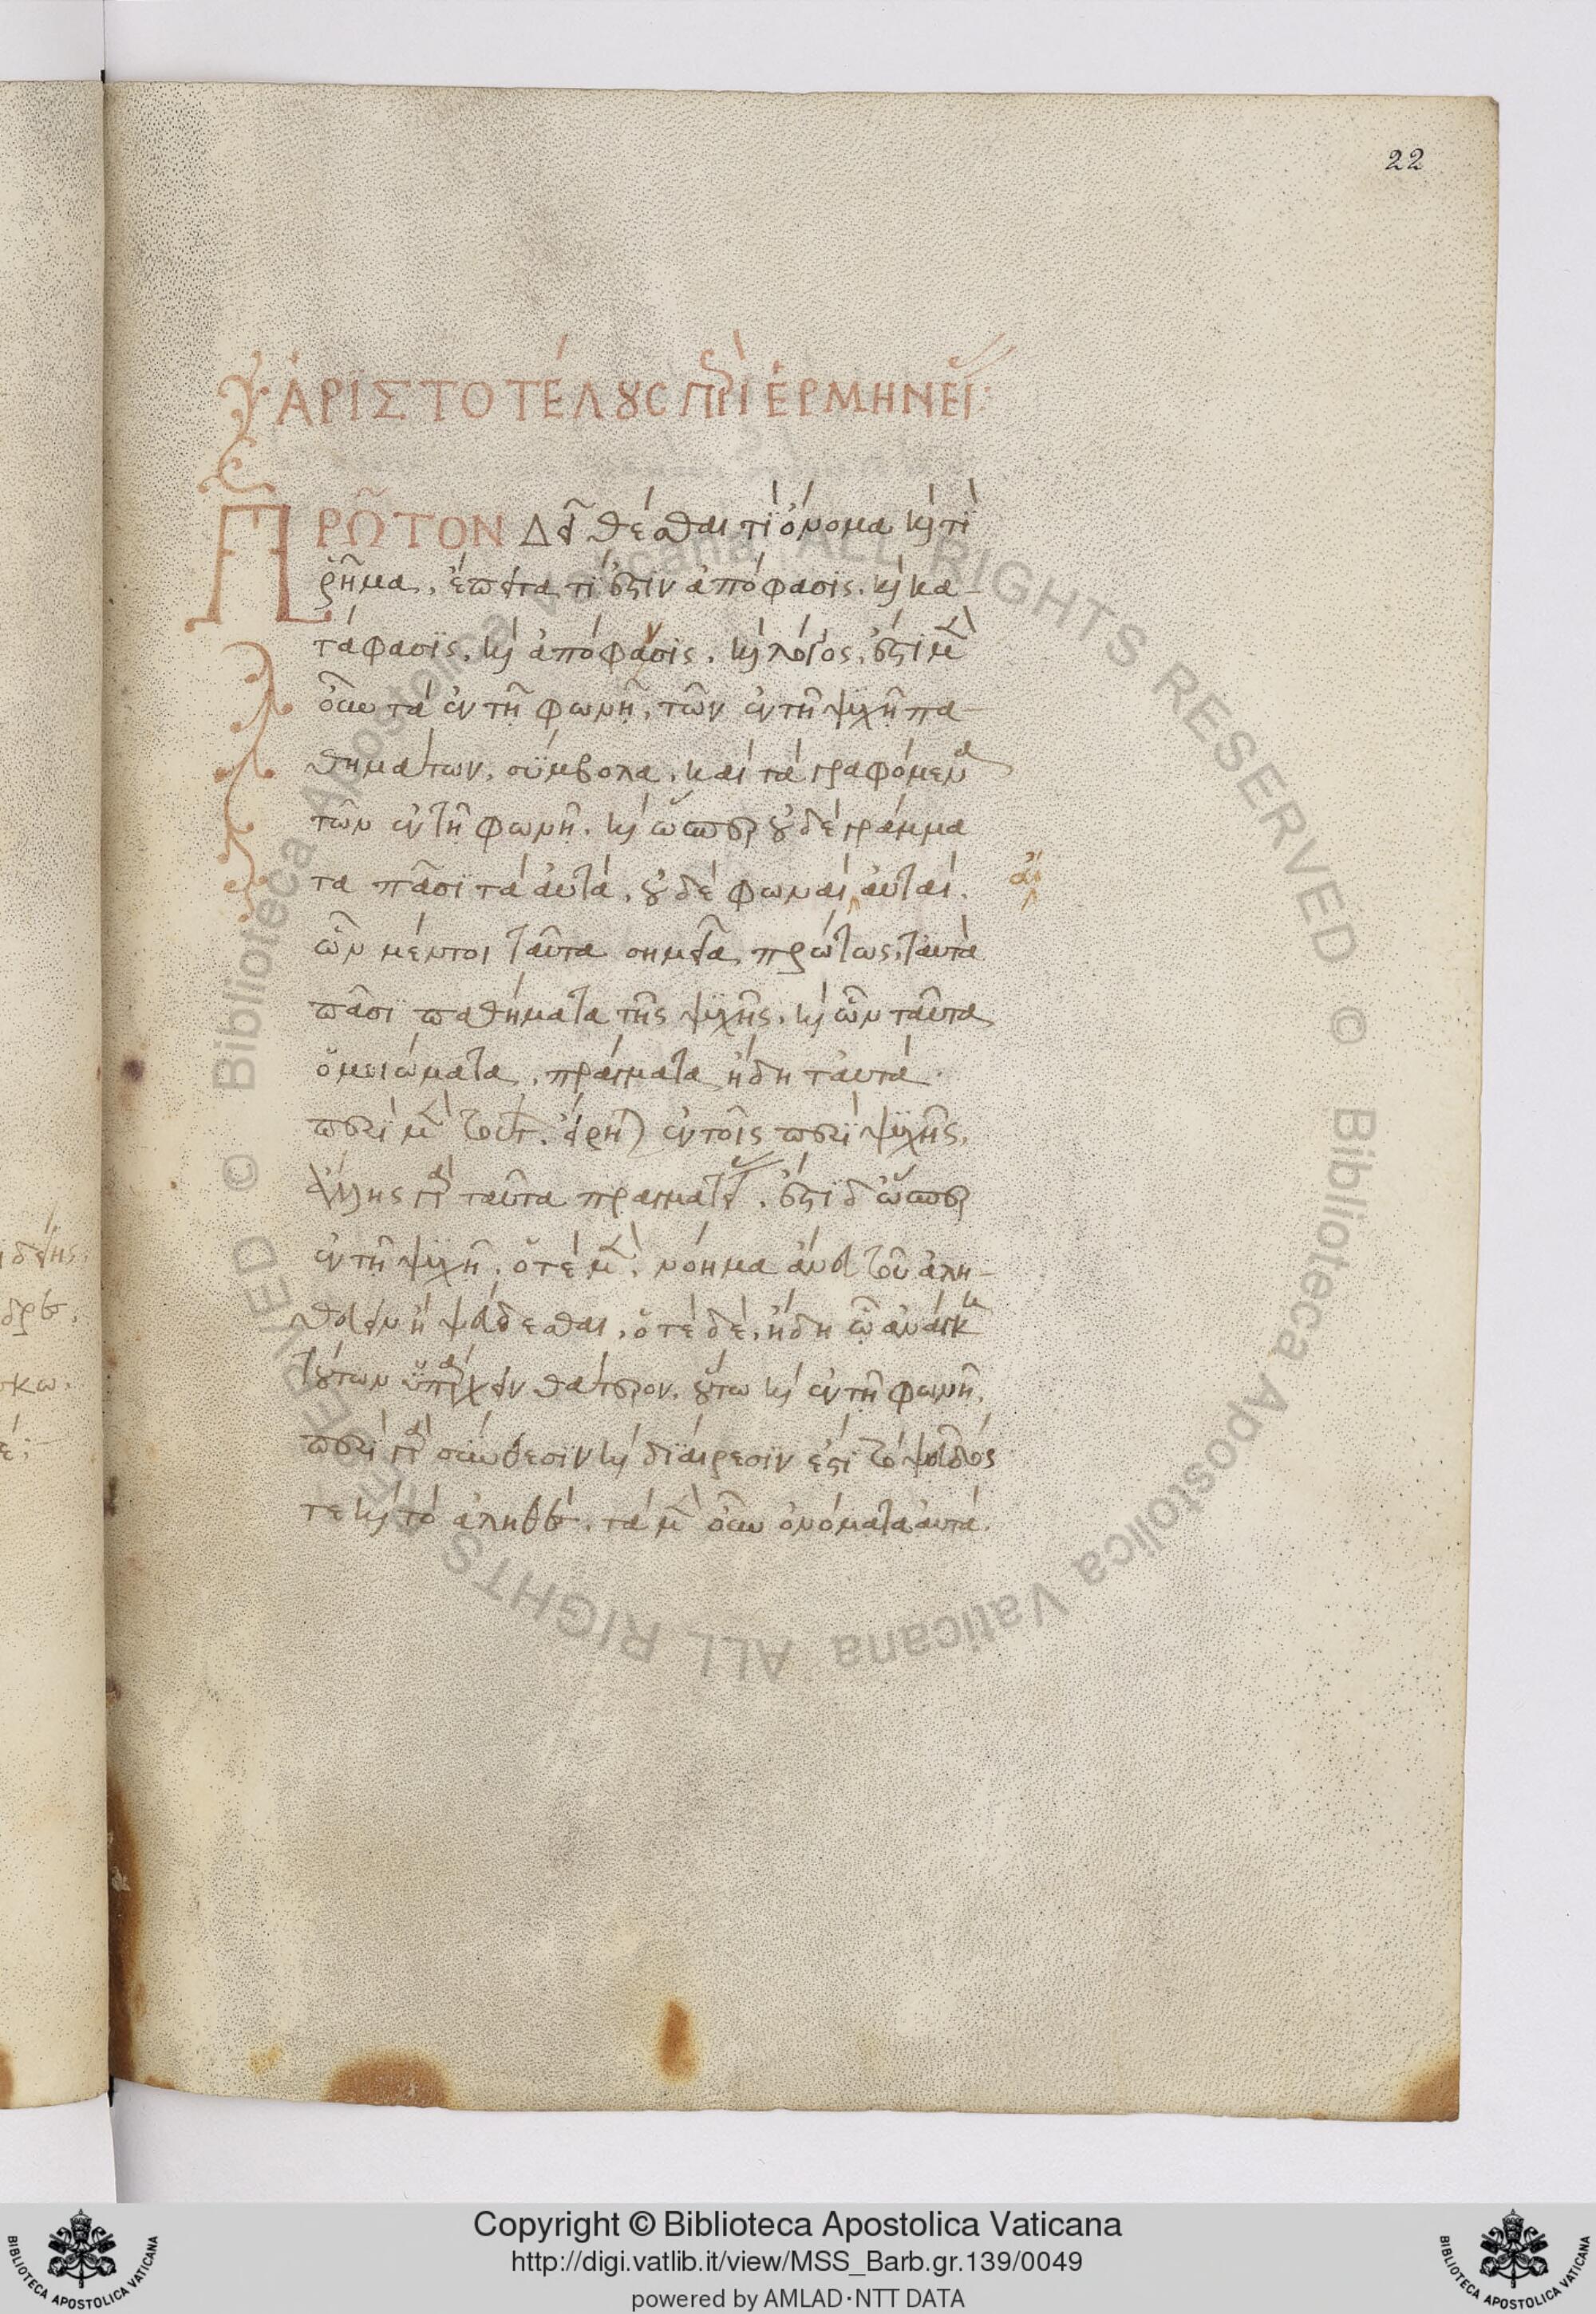 22
ἈΡΙΣΤΟΤΈΛΟΥΣ ΠΕΡῚ ἙΡΜΗΝΕΊΑΣ:
ΠΡΩ͂ΤΟΝ Δεῖ θέσθαι τί ὄνομα καὶ τί
ῥῆμα. ἔπειτα τί ἐστὶν ἀπόφασις. καὶ κα-
τάφασις. καὶ ἀπόφανσις. καὶ λόγος. ἔστι μὲν
οὖν τὰ ἐν τῆ φωνῆ, τῶν ἐν τῆ ψυχῆ πα-
θημάτων, σύμβολα. καὶ τὰ γραφόμενα
τῶν ἐν τῆ φωνῆ. καὶ ὥσπερ οὐδὲ γράμμα
τα πᾶσι τὰ αὐτὰ, οὐδὲ φωναὶ αὐταί. αἱ
ὧν μέντοι ταῦτα σημεῖα πρώτως, ταὐτὰ
πᾶσι παθήματα τῆς ψυχῆς. καὶ ὧν ταῦτα
ὁμοιώματα, πράγματα ἤδη ταὐτά.
περὶ μὲν τούτων εἴρηται ἐν τοῖς περὶ ψυχῆς.
ἄλλης γὰρ ταῦτα πραγματείας. ἔστι δ ὥσπερ
ἐν τῆ ψυχῆ, ὁτὲ μὲν, νόημα ἄνευ τοῦ ἀλη-
θεύειν ἢ ψεύδεσθαι, ὁτὲ δὲ, ἤδη ὧ ἀνάγκη
τούτων ὑπάρχειν θάτερον. οὕτω καὶ ἐν τῆ φωνῆ.
περὶ γὰρ σύνθεσιν καὶ διαίρεσιν ἐστὶ τὸ ψεῦδος
τε καὶ τὸ ἀληθές. τὰ μὲν οὖν ὀνόματα αὐτὰ.
Copyright © Biblioteca Apostolica Vaticana
http://digi.vatlib.it/view/MSS_Barb.gr.139/0049
powered by AMLAD·NTT DATA